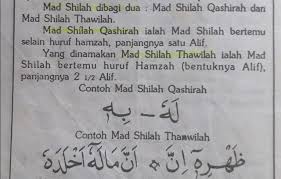 Mad Shilah dibagi dua : Mad Shilah Qashirah dan
Mad Shilah Thawilah.
Mad Shilah Qashirah ialah Mad Shilah bertemu
selain huruf hamzah, panjangnya satu Alif.
Yang dinamakan Mad Shilah Thawilah ialah Mad
Shilah bertemu huruf Hamzah (bentuknya Alif),
panjangnya 2 1/2 Alif.
Contoh Mad Shilah Qashirah
لَهُ - بِهِ
Contoh Mad Shilah Thawwilah
ظَهْرِهٓ اِنَّ ※ اَنَّ مَالَهٗٓ اَخْلَدَهٗ